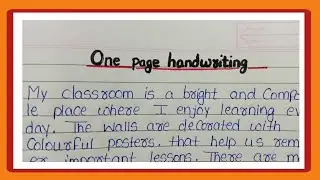 One page handwriting
My classroom is a bright and Comfo
le place where I enjoy learning ev
day. The walls are decorated with
Colourful posters. that help us rem
er important lessons. There are m